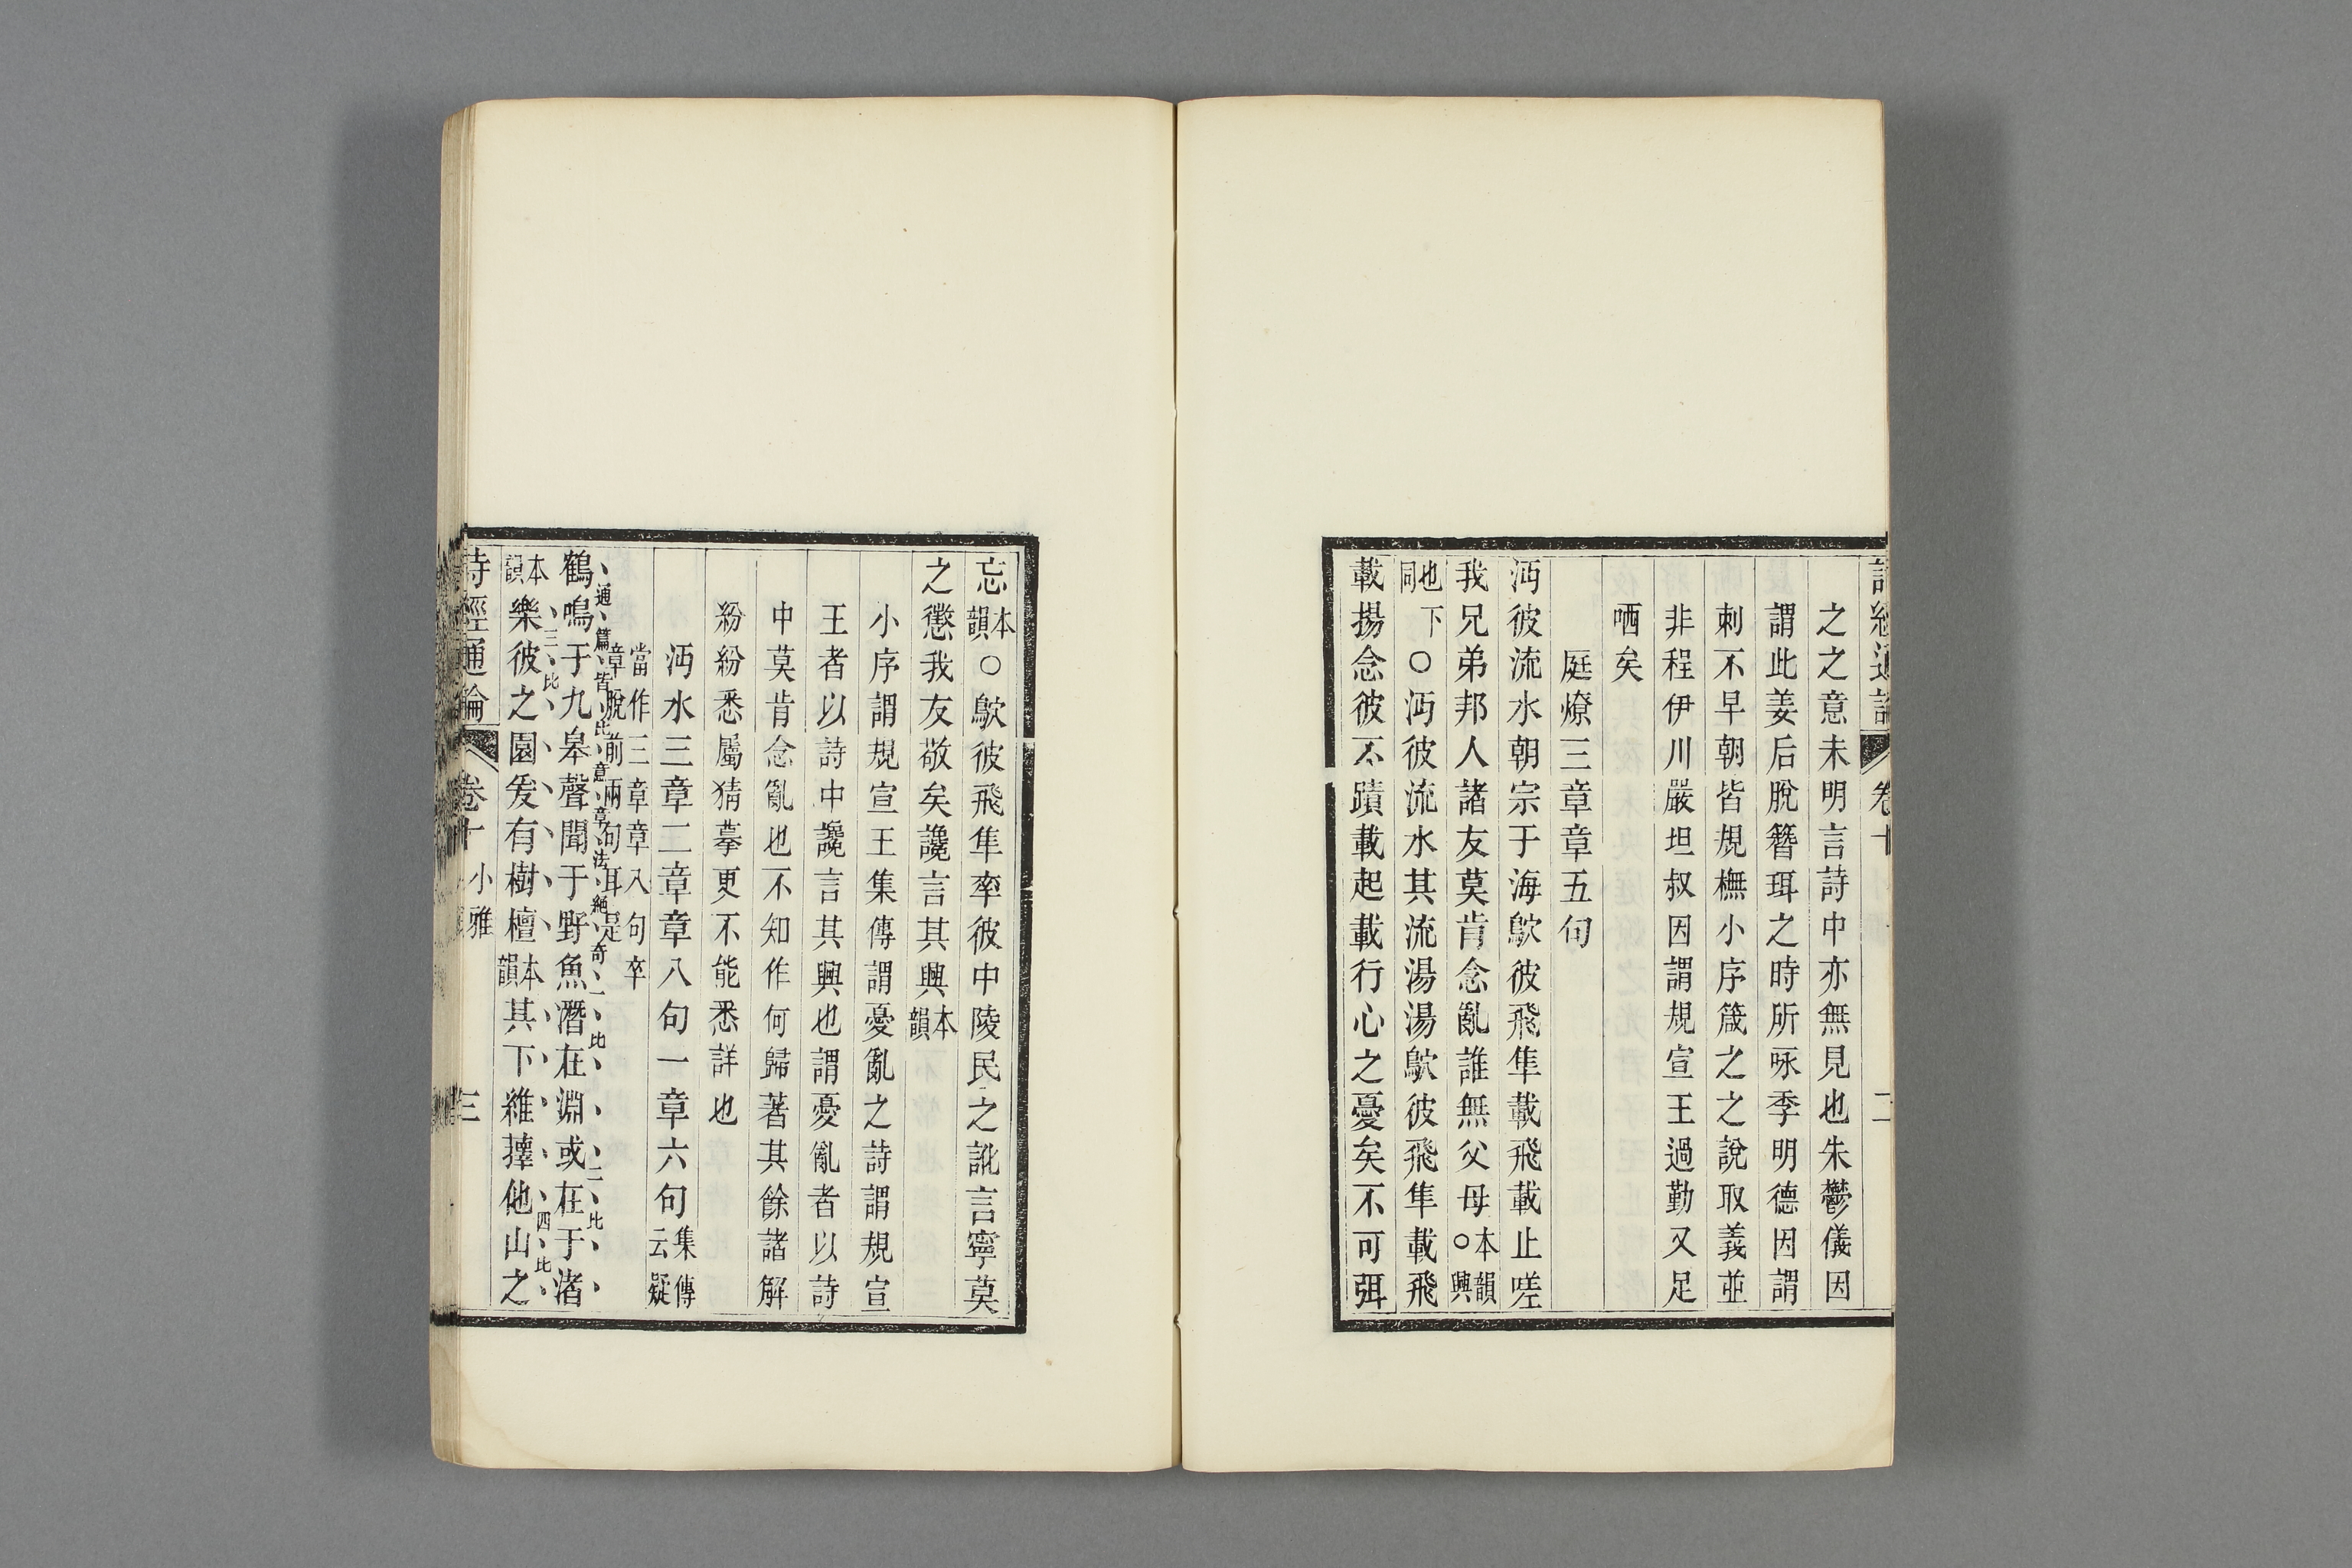 詩經通論 卷十 二
之之意未明言詩中亦無見也朱鬱儀因
謂此姜后脫簪珥之時所咏季明德因謂
刺不早朝皆規橅小序箴之之說取義並
非程伊川嚴坦叔因謂規宣王過勤又足
哂矣
庭燎三章章五句
沔彼流水朝宗于海鴥彼飛隼載飛載止嗟
我兄弟邦人諸友莫肯念亂誰無父母本韻○興
也下同○沔彼流水其流湯湯鴥彼飛隼載飛
載揚念彼不蹟載起載行心之憂矣不可弭
忘本韻○鴥彼飛隼率彼中陵民之訛言寧莫
之懲我友敬矣讒言其興本韻
小序謂規宣王集傳謂憂亂之詩謂規宣
王者以詩中讒言其興也謂憂亂者以詩
中莫肯念亂也不知作何歸著其餘諸解
紛紛悉屬猜摹更不能悉詳也
沔水三章二章章八句一章六句集傳云疑
當作三章章八句卒章脫前兩句耳是
通篇皆比意章法絕奇一比二比
鶴鳴于九皋聲聞于野魚潛在淵或在于渚
三比四比
本韻樂彼之園爰有樹檀本韻其下維蘀他山之
詩經通論 卷十 小雅 三